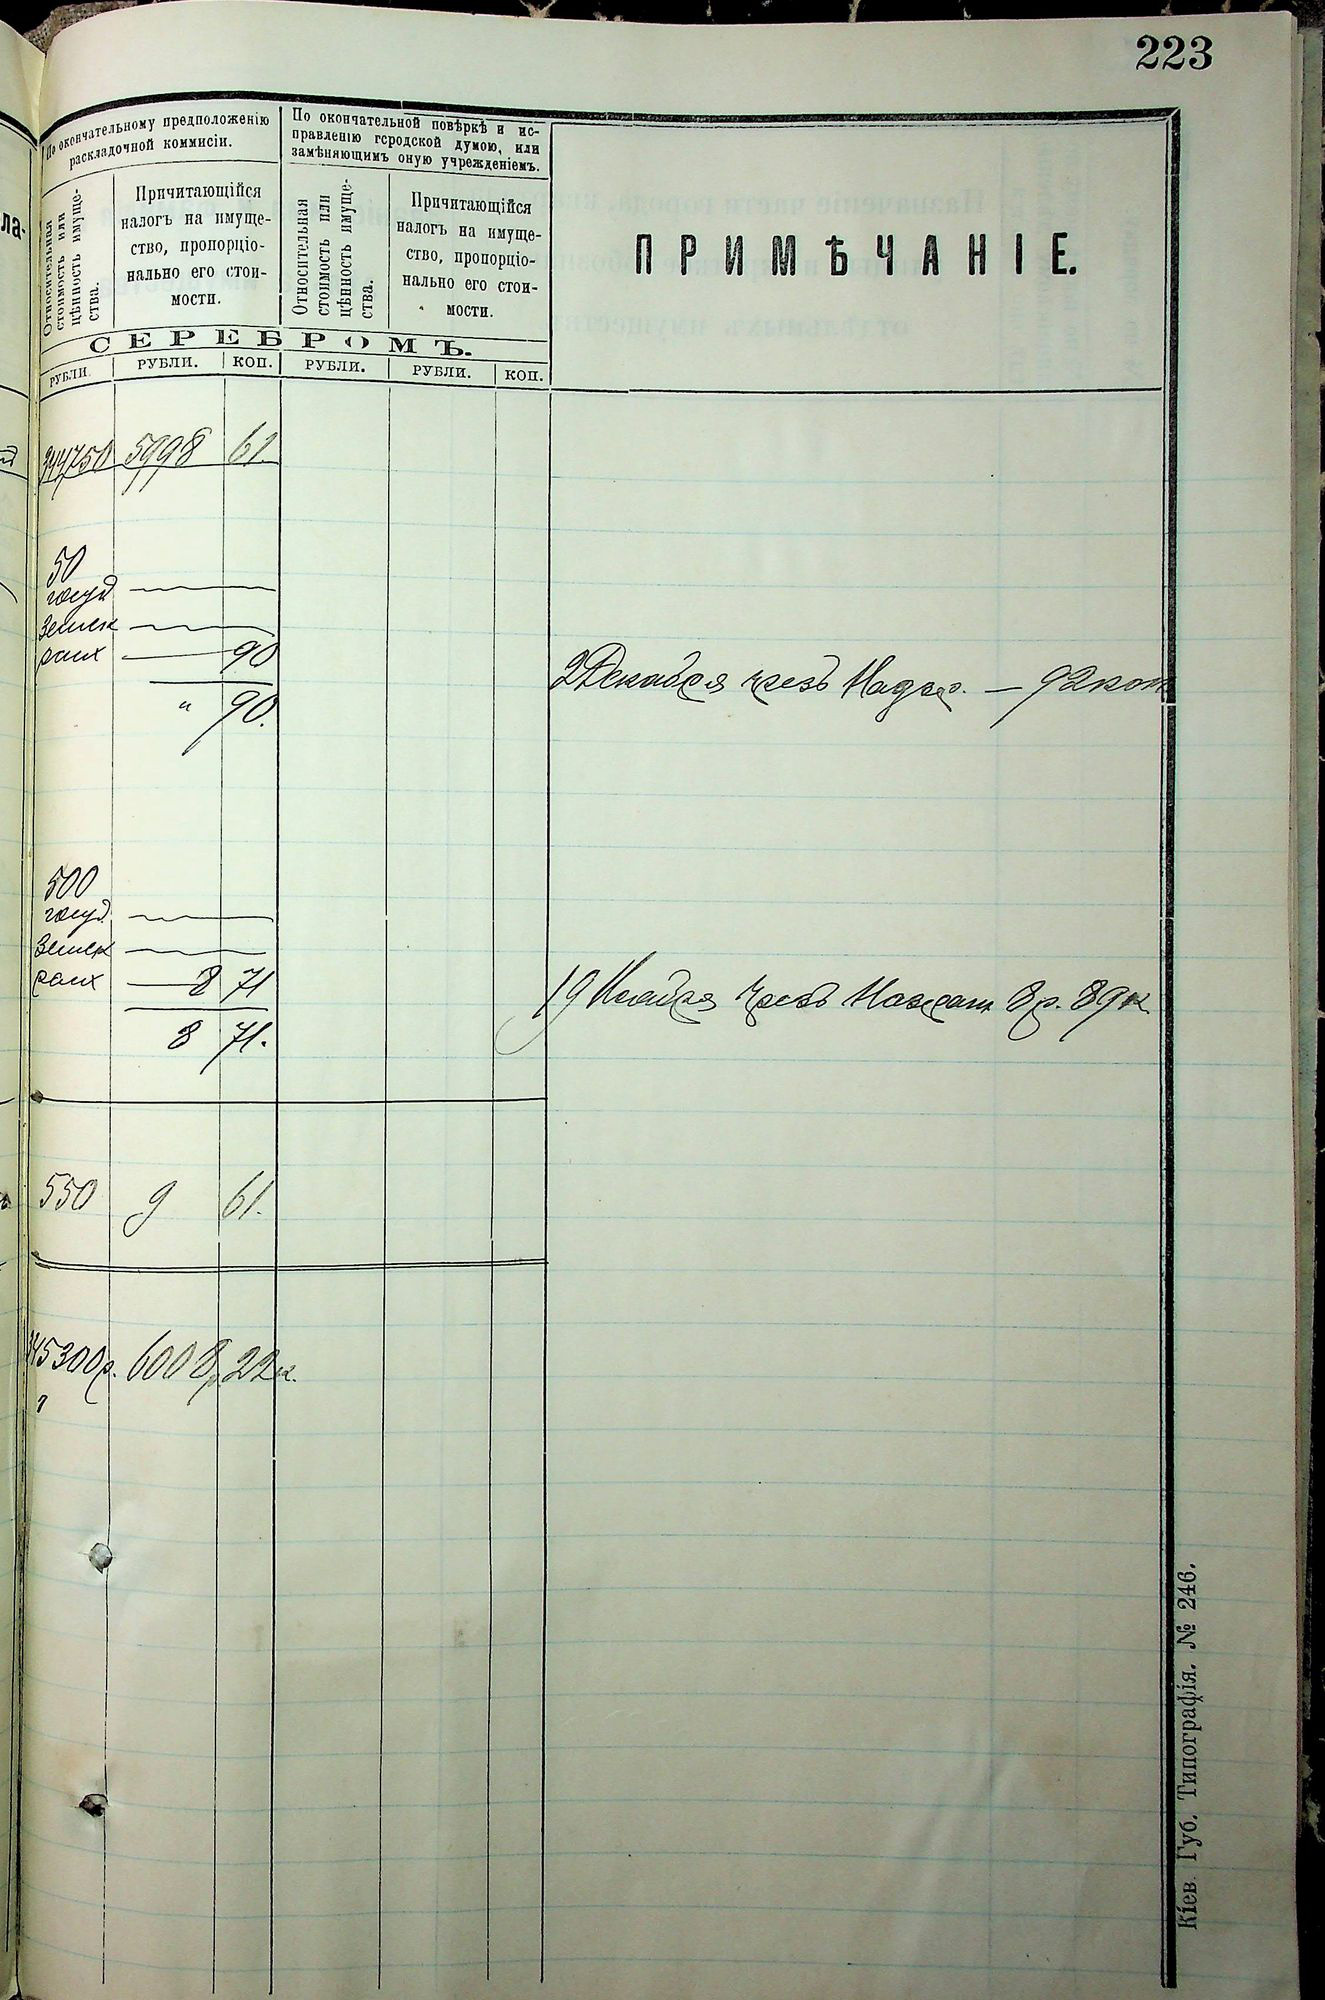 223
ла-
По окончательному предположенію
раскладочной коммисіи.
По окончательной повѣркѣ и ис-
правленію городской думою, или
замѣняющимъ оную учрежденіемъ.
Относительная
стоимость или
цѣнность имуще-
ства.
Причитающійся
налогъ на имуще-
ство, пропорціо-
нально его стои-
мости.
Относительная
стоимость или
цѣнность имуще-
ства.
Причитающійся
налогъ на имуще-
ство, пропорціо-
нально его стои-
мости.
ПРИМѢЧАНІЕ.
СЕРЕБРОМЪ.
РУБЛИ. РУБЛИ. КОП. РУБЛИ. РУБЛИ. КОП.
344750 5998 61.
50
госуд
Земск
90
2 Декабря чрезъ — 92 коп
" 90.
500
госуд.
Земск
8 71
19 Ноября чрезъ 8 р. 89 к.
8 71.
550 9 61.
345300р. 6008р 22к.
Кіев. Губ. Типографія. № 246.